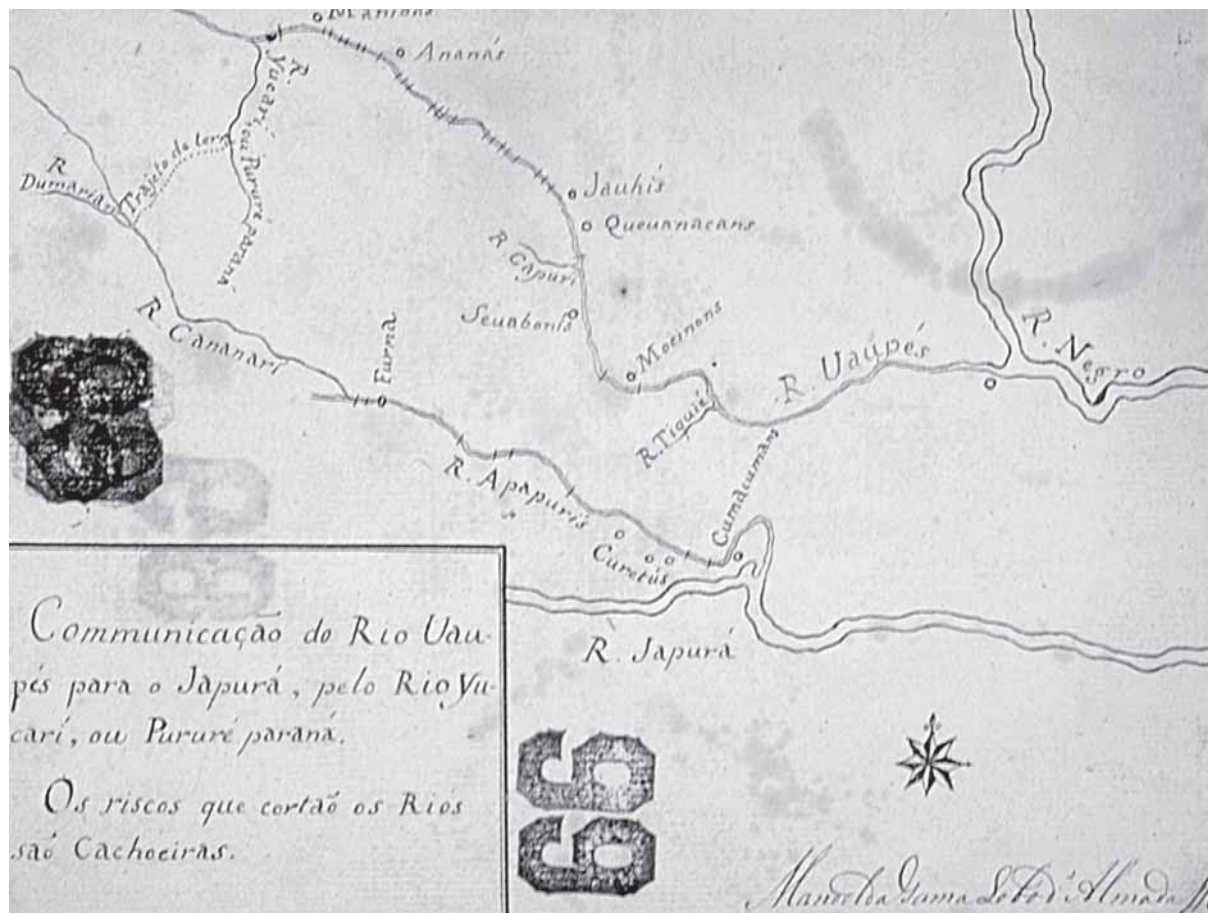 Manions
Ananás
R. Yucarí, ou Pururé paraná
Trajeto de terra
R. Dumariá
Jauhis
Queuanacans
R. Capurí
Seuabonis
Mocinons
R. Cananarí
Furna
R. Uaupés
R. Negro
R. Tiquié
R. Apapuris
Cumacumans
Curetús
R. Japurá
Communicação do Rio Uau-
pés para o Japurá, pelo Rio Yu-
carí, ou Pururé paraná.
Os riscos que cortaõ os Rios
saõ Cachoeiras.
66
Manoel da Gama Lobo d'Almada